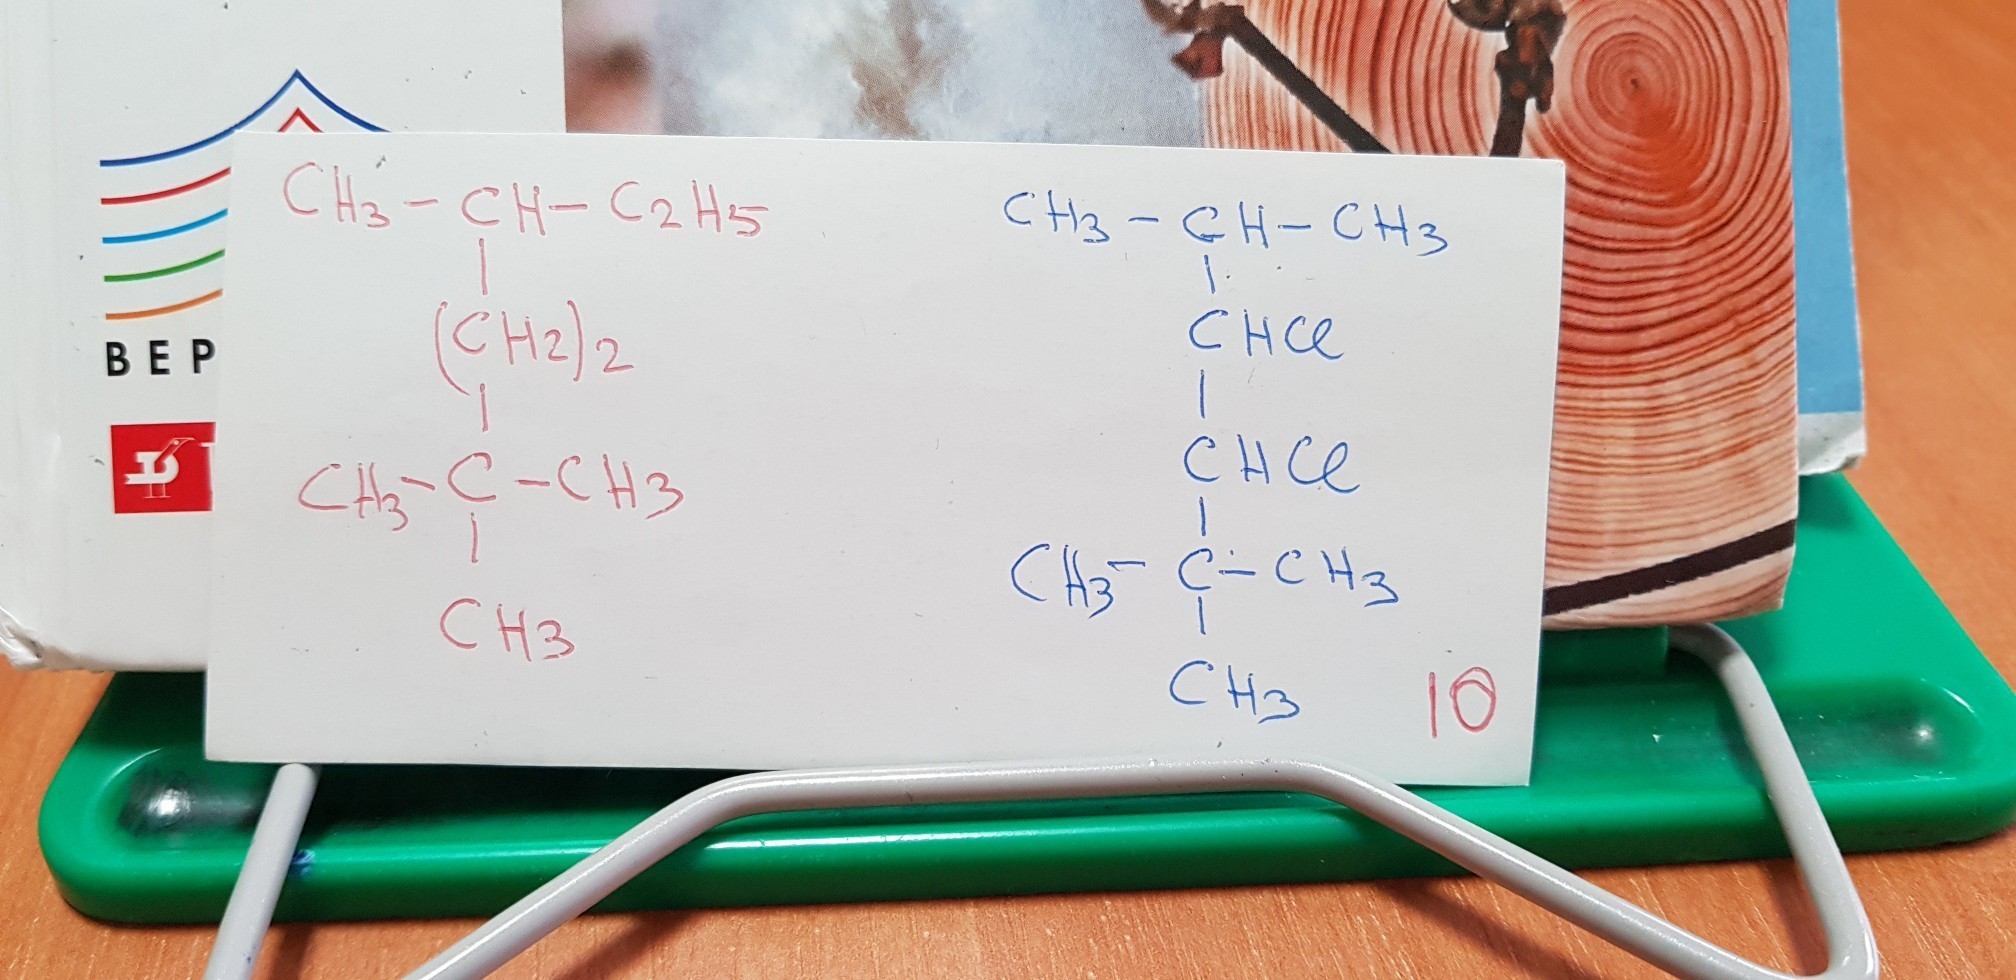 CH3 - CH - C2H5
|
(CH2)2
|
CH3 - C - CH3
|
CH3
CH3 - CH - CH3
|
CHCl
|
CHCl
|
CH3 - C - CH3
|
CH3
10
ВЕР